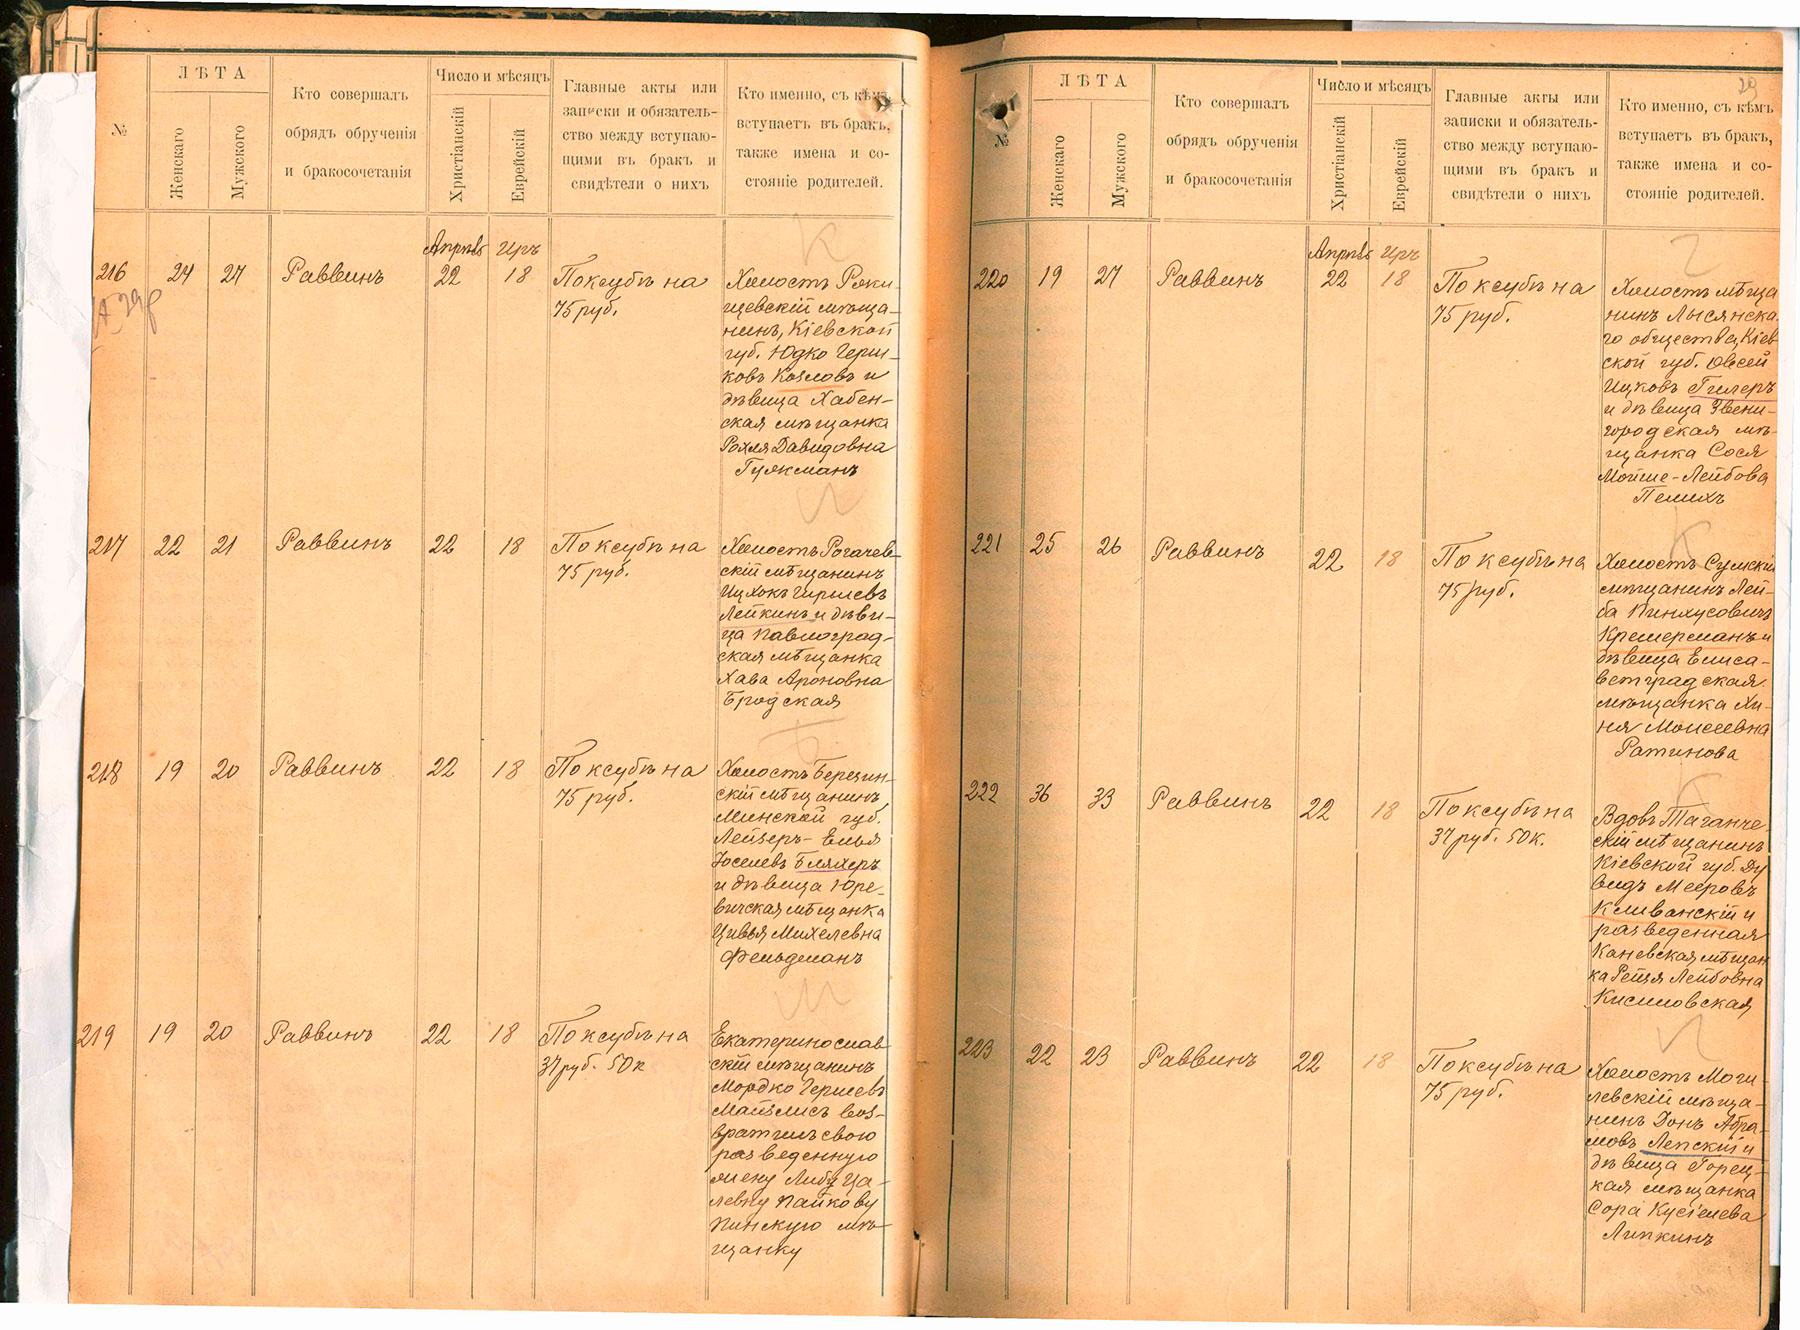 №
ЛѢТА
Женскаго
Мужского
Кто совершалъ
обрядъ обрученія
и бракосочетанія
Число и мѣсяцъ
Христіанскій
Еврейскій
Главные акты или
записки и обязатель-
ство между вступаю-
щими въ бракъ и
свидѣтели о нихъ
Кто именно, съ кѣмъ
вступаетъ въ бракъ,
также имена и со-
стояніе родителей.
К
Апрѣль Иръ
216 24 27 Раввинъ 22 18
По ксубѣ на
75 руб.
Холостъ Ряжи-
щевскій мѣща-
нинъ, Кіевской
губ. Юдко Герш-
ковъ Козловъ и
дѣвица Хабен-
ская мѣщанка
Рохля Давидовна
Гуякманъ
217 22 21 Раввинъ 22 18
По ксубѣ на
75 руб.
Холостъ Рогачев-
скій мѣщанинъ
Ицхокъ Гиршевъ
Лейкинъ и дѣви-
ца Павлоград-
ская мѣщанка
Хава Ароновна
Бродская
Б
218 19 20 Раввинъ 22 18
По ксубѣ на
75 руб.
Холостъ Березин-
скій мѣщанинъ,
Минской губ.
Лейзеръ-Елья
Іоселевъ Бляхеръ
и дѣвица Юре-
вичская мѣщанка
Цивья Михелевна
Фельдманъ
219 19 20 Раввинъ 22 18
По ксубѣ на
37 руб. 50 к
Екатеринослав-
скій мѣщанинъ
Мордко Гершевъ
Майзлисъ воз-
вратилъ свою
разведенную
жену Либу Ца-
левну Пайкову
Пинскую мѣ-
щанку
29
№
ЛѢТА
Женскаго
Мужского
Кто совершалъ
обрядъ обрученія
и бракосочетанія
Число и мѣсяцъ
Христіанскій
Еврейскій
Главные акты или
записки и обязатель-
ство между вступаю-
щими въ бракъ и
свидѣтели о нихъ
Кто именно, съ кѣмъ
вступаетъ въ бракъ,
также имена и со-
стояніе родителей.
Г
Апрѣль Иръ
220 19 27 Раввинъ 22 18
По ксубѣ на
75 руб.
Холостъ мѣща
нинъ Лысянска
го общества, Кіев
ской губ. Овсей
Ицковъ Гилеръ
и дѣвица Звени-
городская мѣ-
щанка Сося
Мойше-Лейбова
Пелихъ
К
221 25 26 Раввинъ 22 18
По ксубѣ на
75 руб.
Холостъ Сумскій
мѣщанинъ Лей-
ба Пинхусовичъ
Кремерманъ и
дѣвица Елиса-
ветградская
мѣщанка Хи-
ня Моисеевна
Ратинова
К
222 36 33 Раввинъ 22 18
По ксубѣ на
37 руб. 50 к.
Вдовъ Таганче-
скій мѣщанинъ
Кіевской губ. Ду
видъ Мееровъ
Кливанскій и
разведенная
Каневская мѣщан
ка Рейзя Лейбовна
Кисиловская
Л
223 22 23 Раввинъ 22 18
По ксубѣ на
75 руб.
Холостъ Моги-
левскій мѣща-
нинъ Донъ Абра-
мовъ Лепскій и
дѣвица Горец-
кая мѣщанка
Сора Кусіелева
Липкинъ